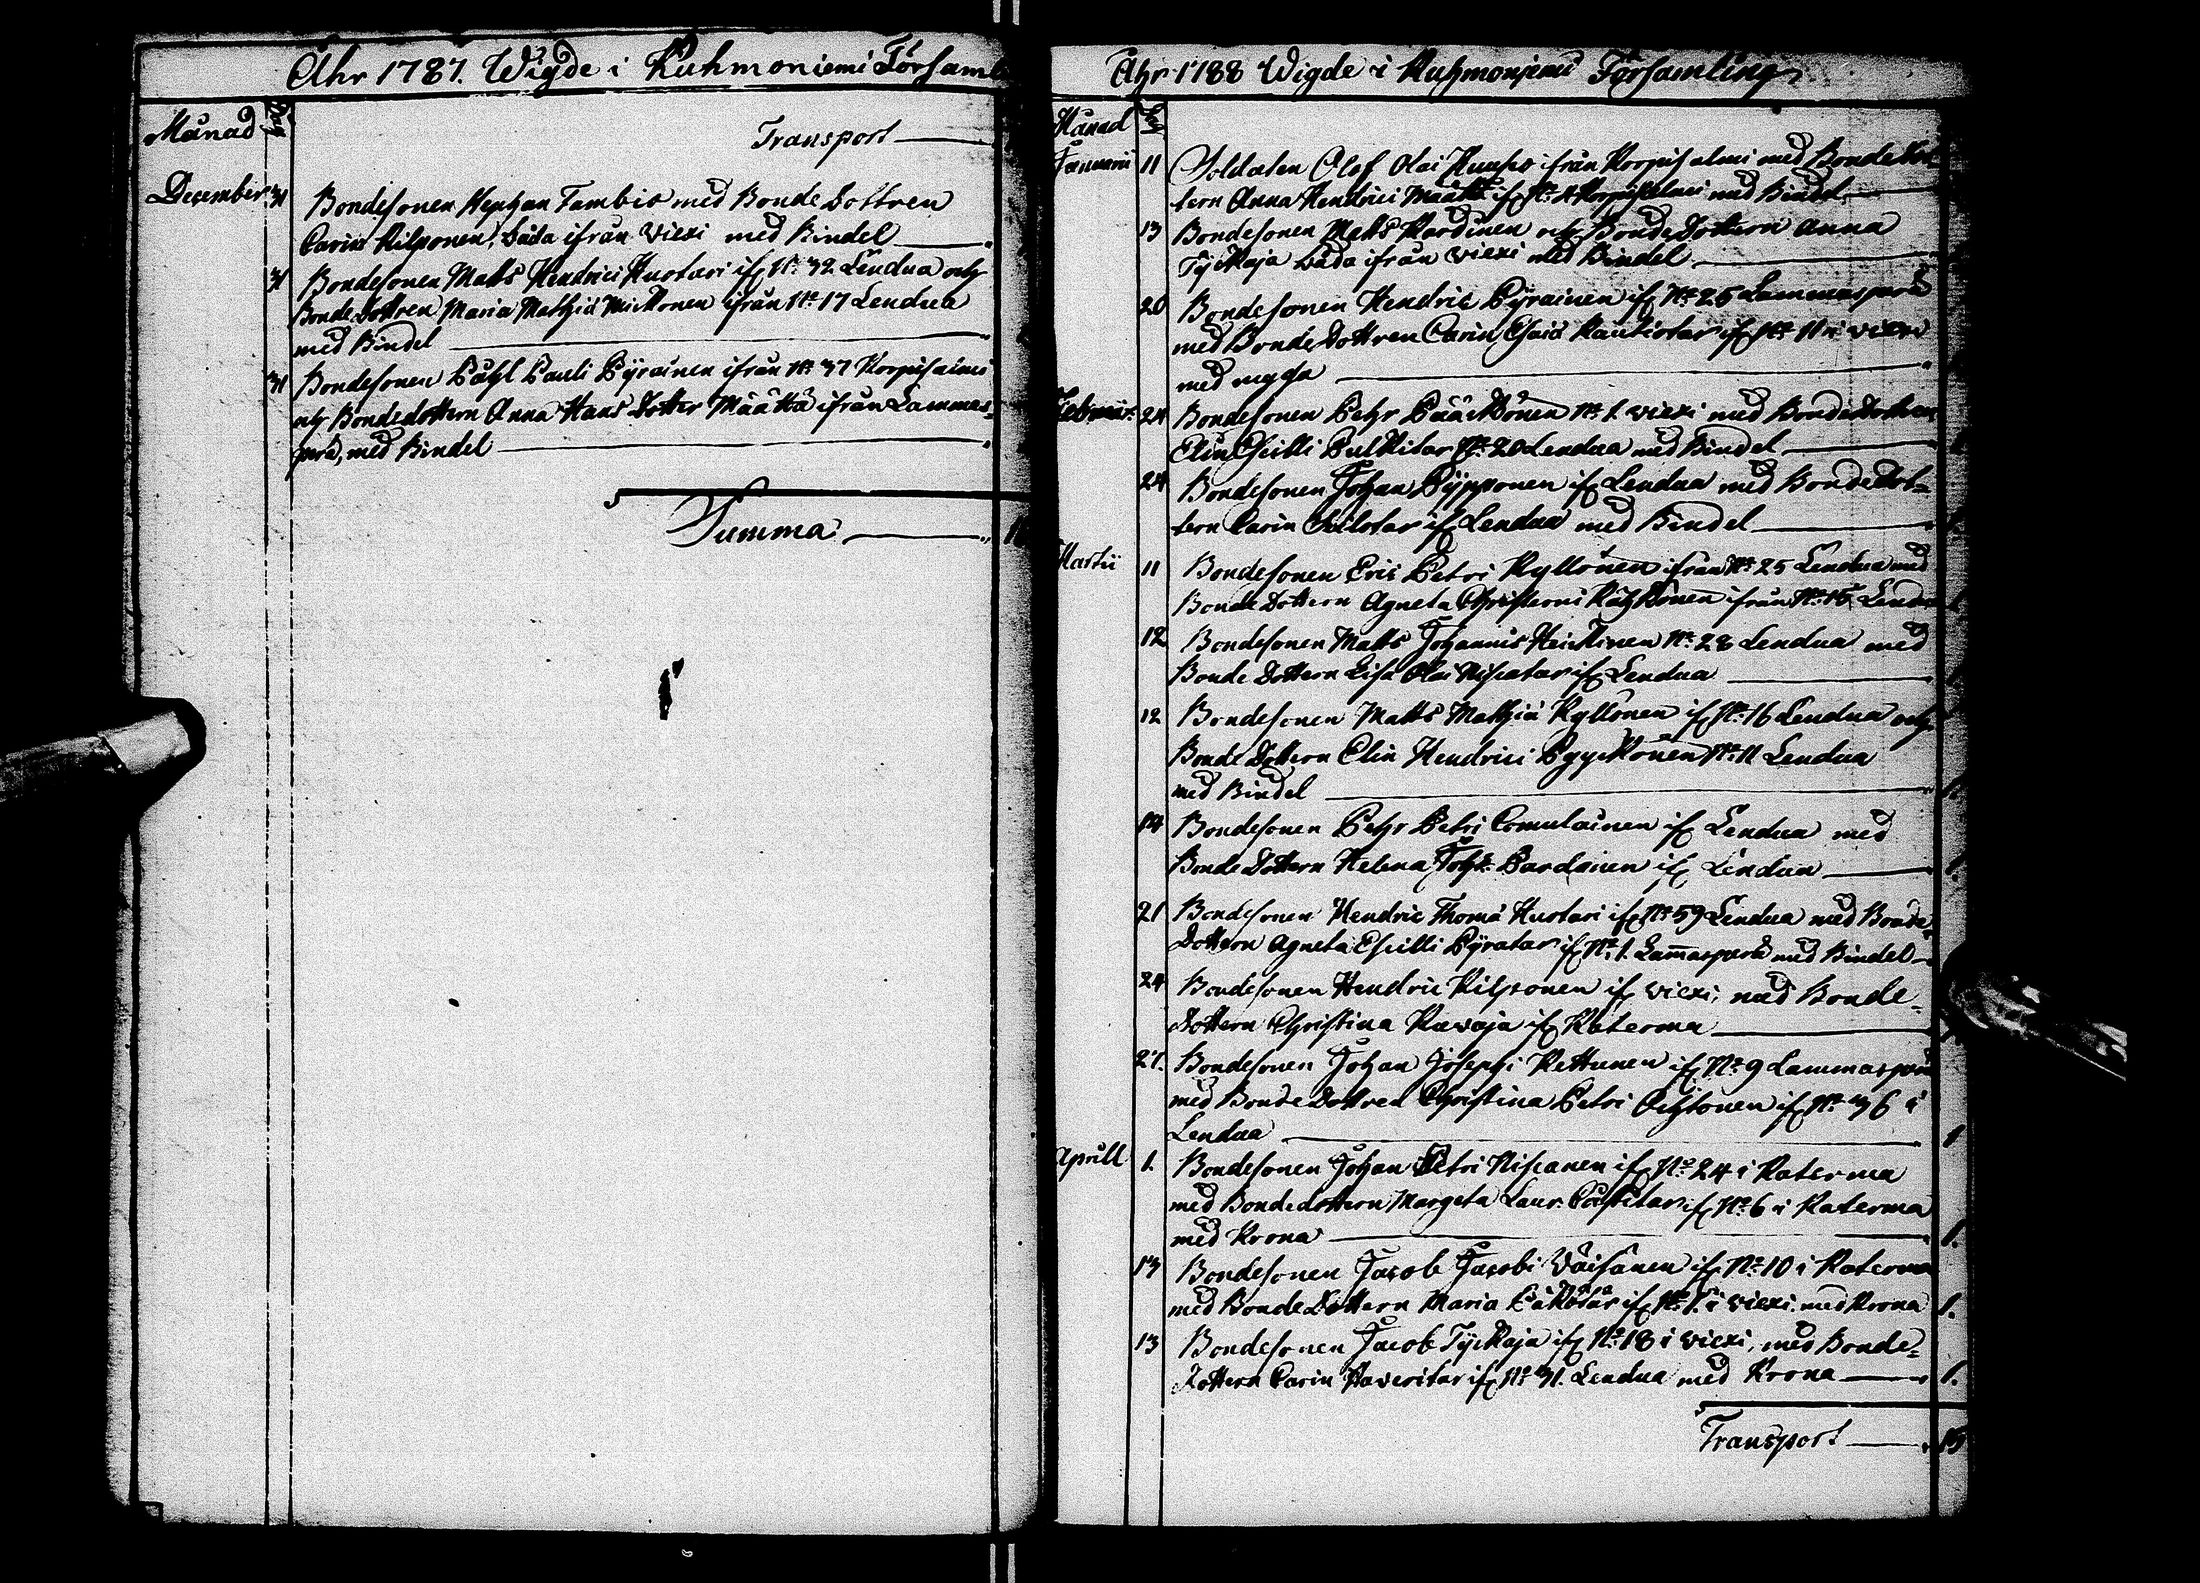 Åhr 1787. Wigde i Kuhmoniemi Församl
Månad Dag
Transport
December 31 Bondesonen Stephan Tambio med Bonde Dottren
Carin Kilponen, båda ifrån Viexi med Bindel
31 Bondesonen Matts Hendrici Huotari if N:o 32 Lendua och
Bonde Dottren Maria Mathiæ Mickonen ifrån N:o 17 Lendua
med Bindel
31 Bondesonen Påhl Pauli Pyrainen ifrån N:o 37 Korpisalmi
och Bondedottern Anna Hans Dotter Määttä ifrån Lammas-
perä, med Bindel
Summa
Åhr 1788 Wigde i Kuhmoniemi Församling
Månad Dag
Januarii 11 Soldaten Olof Olai ifrån Korpisalmi med Bonde
tern Anna Hendrici Määttä if Korpisalmi med Bindel
13 Bondesonen Matts Kardinen och Bonde Dottern Anna
Tyckkaja båda ifrån Viexi med Bindel
20 Bondesonen Hendric Pyrainen if N:o 25 Lammasperä
med Bonde Dottren Carin Esaiæ Rautiotar if N:o 11 i Viexi
med
Februar: 24 Bondesonen Pehr Pääckönen N:o 1. Viexi med Bonde Dottren
Elin Eskilli Pulkitar N:o 20 Lendua med Bindel
24 Bondesonen Johan Pypponen if Lendua med Bonde Dot-
tern Carin if Lendua med Bindel
Martii 11 Bondesonen Eric Petri Kyllönen ifrån N:o 25 Lendua med
Bonde Dottern Agneta Christierni ifrån N:o 15 Lendua
12 Bondesonen Matts Johannis Heickinen N:o 28 Lendua med
Bonde Dottern Lisa Olai Niscatar if Lendua
12 Bondesonen Matts Mathiæ Kyllönen if N:o 16 Lendua och
Bonde Dottern Elin Hendrici Pyyckönen N:o 11 Lendua
med Bindel 1.
14 Bondesonen Pehr Petri Comulainen if Lendua med
Bonde Dottern Helena Joh: Pardainen if Lendua 1.
21 Bondesonen Hendric Thomæ Huotari if N:o 59 Lendua med Bonde-
Dottern Agneta Eskilli Pyratar if N:o 1. Lam̄asperä med Bindel
24 Bondesonen Hendric Kilponen if Viexi, med Bonde-
dottern Christina Kavaja if Katerma
27. Bondesonen Johan Josephi Kettunen if N:o 9 Lammasperä
med Bonde Dottren Christina Petri Achtonen if N:o 36 i
Lendua 1
Aprill 1. Bondesonen Johan Petri Niscanen if N:o 24 i Katerma
med Bondedottern Margeta Laur: if N:o 6 i Katerma
med Krona 1.
13 Bondesonen Jacob Jacobi Väisänen if N:o 10 i Katerma
med Bonde Dottern Maria Päkötär if N:o 1. i Viexi med Krona 1.
13 Bondesonen Jacob Tyckaja if N:o 18 i Viexi, med Bonde-
Dottern Carin Haveritar if N:o 31. Lendua med Krona 1.
Transport 15